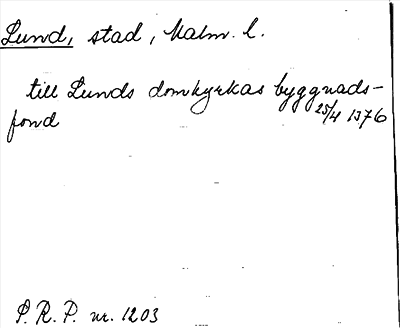 Lund, stad, Malm. l.
till Lunds domkyrkas byggnads-
fond 25/4 1376
S. R. P. nr. 1203